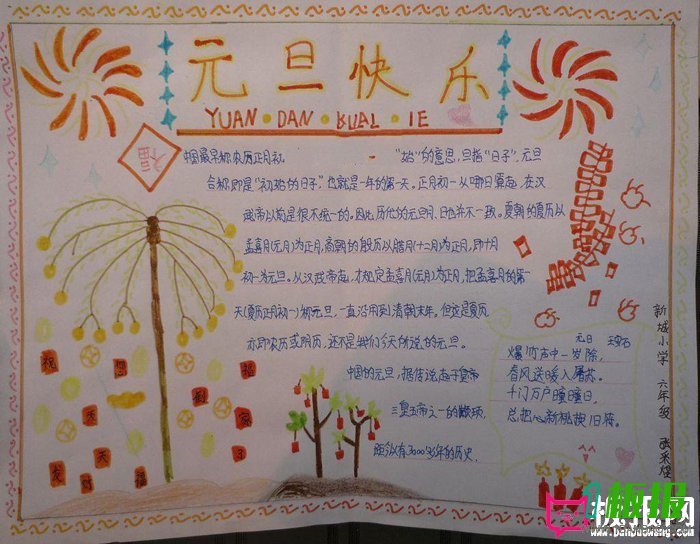 元旦快乐
YUAN·DAN·KUAI·IE
福
中国最早称农历正月初 "始"的意思,旦指"日子",元旦
合称即是"初始的日子",也就是一年的第一天。正月初一从哪日算起,在汉
武帝以前是很不统一的。因此,历代的元旦月、日也并不一致。夏朝的夏历以
孟喜月(元月)为正月,商朝的殷历以腊月(十二月)为正月,即十月
初一为元旦。从汉武帝起,才规定孟喜月(元月)为正月,把孟喜月的第一
天(夏历正月初一)称元旦,一直沿用到清朝末年。但这是夏历,
亦即农历或阴历,还不是我们今天所说的元旦。
中国的元旦,据传说起于皇帝
三皇五帝之一的颛顼,
距今以有3000多年的历史.
元日 王安石
爆竹声中一岁除,
春风送暖入屠苏。
千门万户曈曈日,
总把心新桃换旧符。
新城小学 六年级
祝 您 福
秀 倒 家
发 财 天 福 了
板报网
www.banbaowang.com